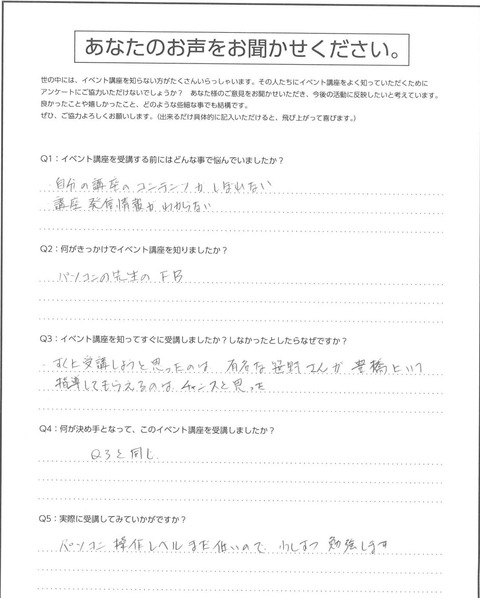 あなたのお声をお聞かせください。
世の中には、イベント講座を知らない方がたくさんいらっしゃいます。その人たちにイベント講座をよく知っていただくために
アンケートにご協力いただけないでしょうか？ あなた様のご意見をお聞かせいただき、今後の活動に反映したいと考えています。
良かったことや嬉しかったこと、どのような些細な事でも結構です。
ぜひ、ご協力よろしくお願いします。（出来るだけ具体的に記入いただけると、飛び上がって喜びます。）
Q1：イベント講座を受講する前にはどんな事で悩んでいましたか？
自分の講座のコンテンツがしぼれない
講座 発信情報がわからない
Q2：何がきっかけでイベント講座を知りましたか？
パソコンの先生の FB
Q3：イベント講座を知ってすぐに受講しましたか？しなかったとしたらなぜですか？
すぐに受講しようと思ったのは 有名な 笹野さんが 豊橋という
指導してもらえるのは チャンスと思った
Q4：何が決め手となって、このイベント講座を受講しましたか？
Q3と同じ
Q5：実際に受講してみていかがですか？
パソコン 操作レベル まだ低いので 少しずつ 勉強します